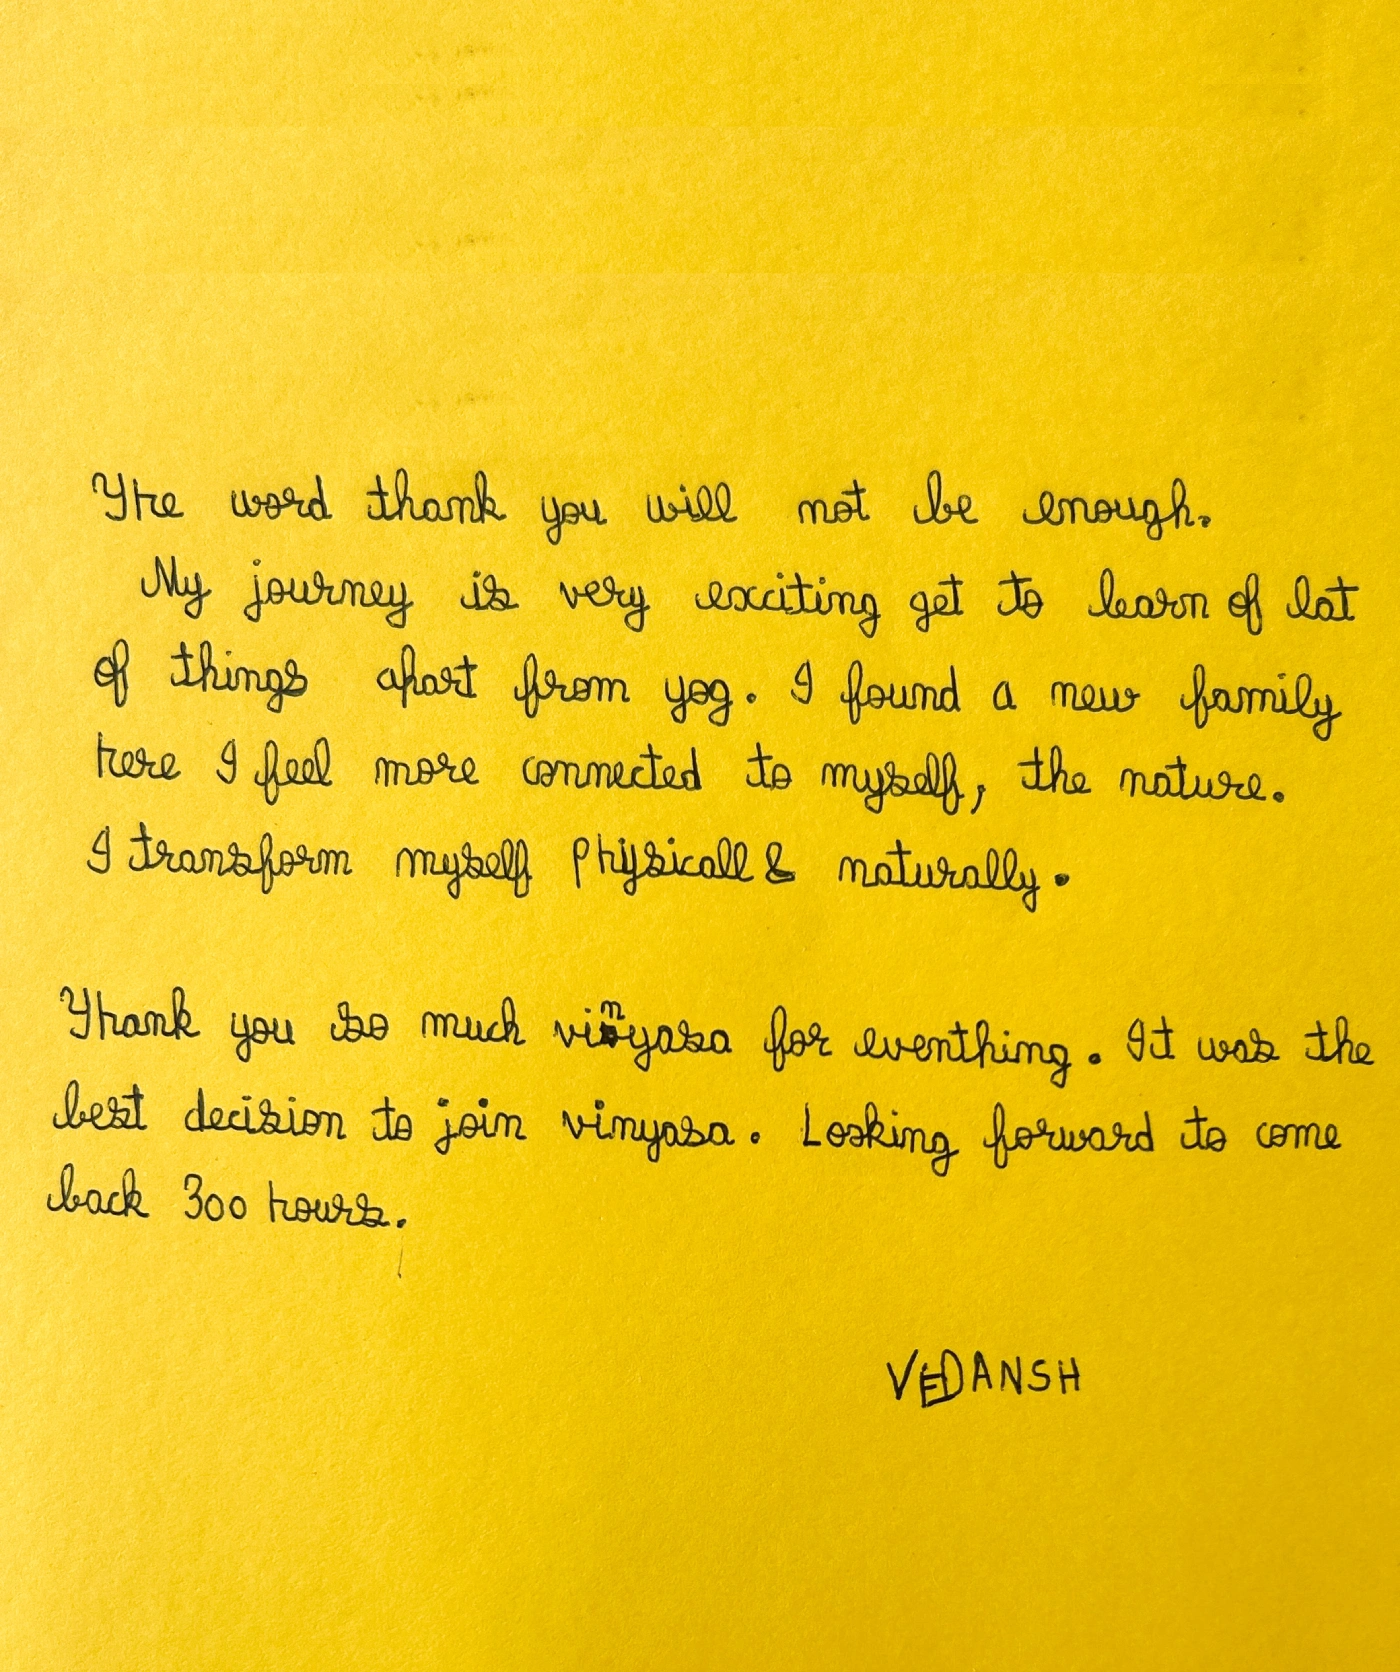 The word thank you will not be enough.
My journey is very exciting get to learn of lot
of things apart from yog. I found a new family
here I feel more connected to myself, the nature.
I transform myself physicall & naturally.
Thank you so much vinyasa for eventhing. It was the
best decision to join vinyasa. Looking forward to come
back 300 hours.
VEDANSH